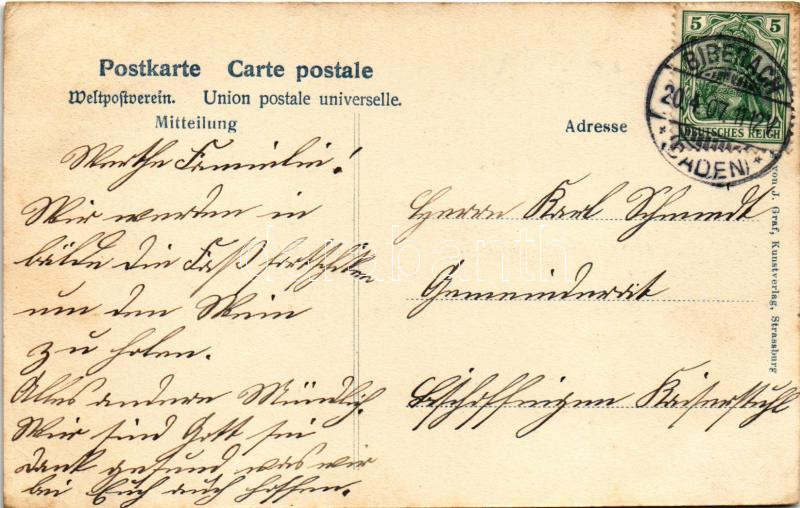 Postkarte Carte postale
Weltpostverein. Union postale universelle.
Mitteilung
Adresse
5 5
DEUTSCHES REICH
BIBERACH
20.4.07. 11-12V
*(BADEN)*
Werthe Familie!
Wir werden in
bälde die Faß fortschicken
um den Wein
zu holen.
Alles andere Mündlich.
Wir sind Gott sei
dank gesund was wir
bei Euch auch hoffen.
Herrn Karl Schmidt
Gemeinderat
Bischoffingen Kaiserstuhl
von J. Graf, Kunstverlag, Strassburg
darabanth